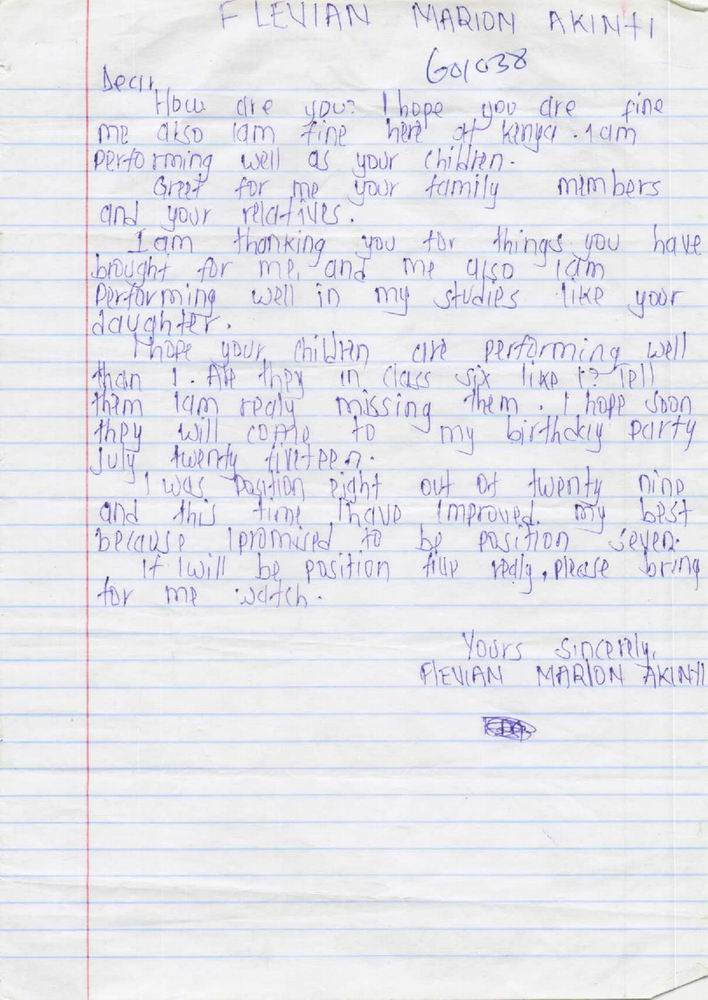 FLEVIAN MARION AKINYI
G01038
Dear,
How are you? I hope you are fine
me also iam fine here at kenya. iam
performing well as your children.
Greet for me your family members
and your relatives.
Iam thanking you for things you have
brought for me, and me also iam
performing well in my studies like your
daughter.
I hope your children are performing well
than I. Are they in class six like I? Tell
them Iam realy missing them. I hope soon
they will come to my birthday party
July twenty fiveteen.
I was position eight out of twenty nine
and this time Ihave improved my best
because Ipromised to be position seven.
If Iwill be position five realy, please bring
for me watch.
Yours sincerely,
FlEVIAN MARION AKINYI